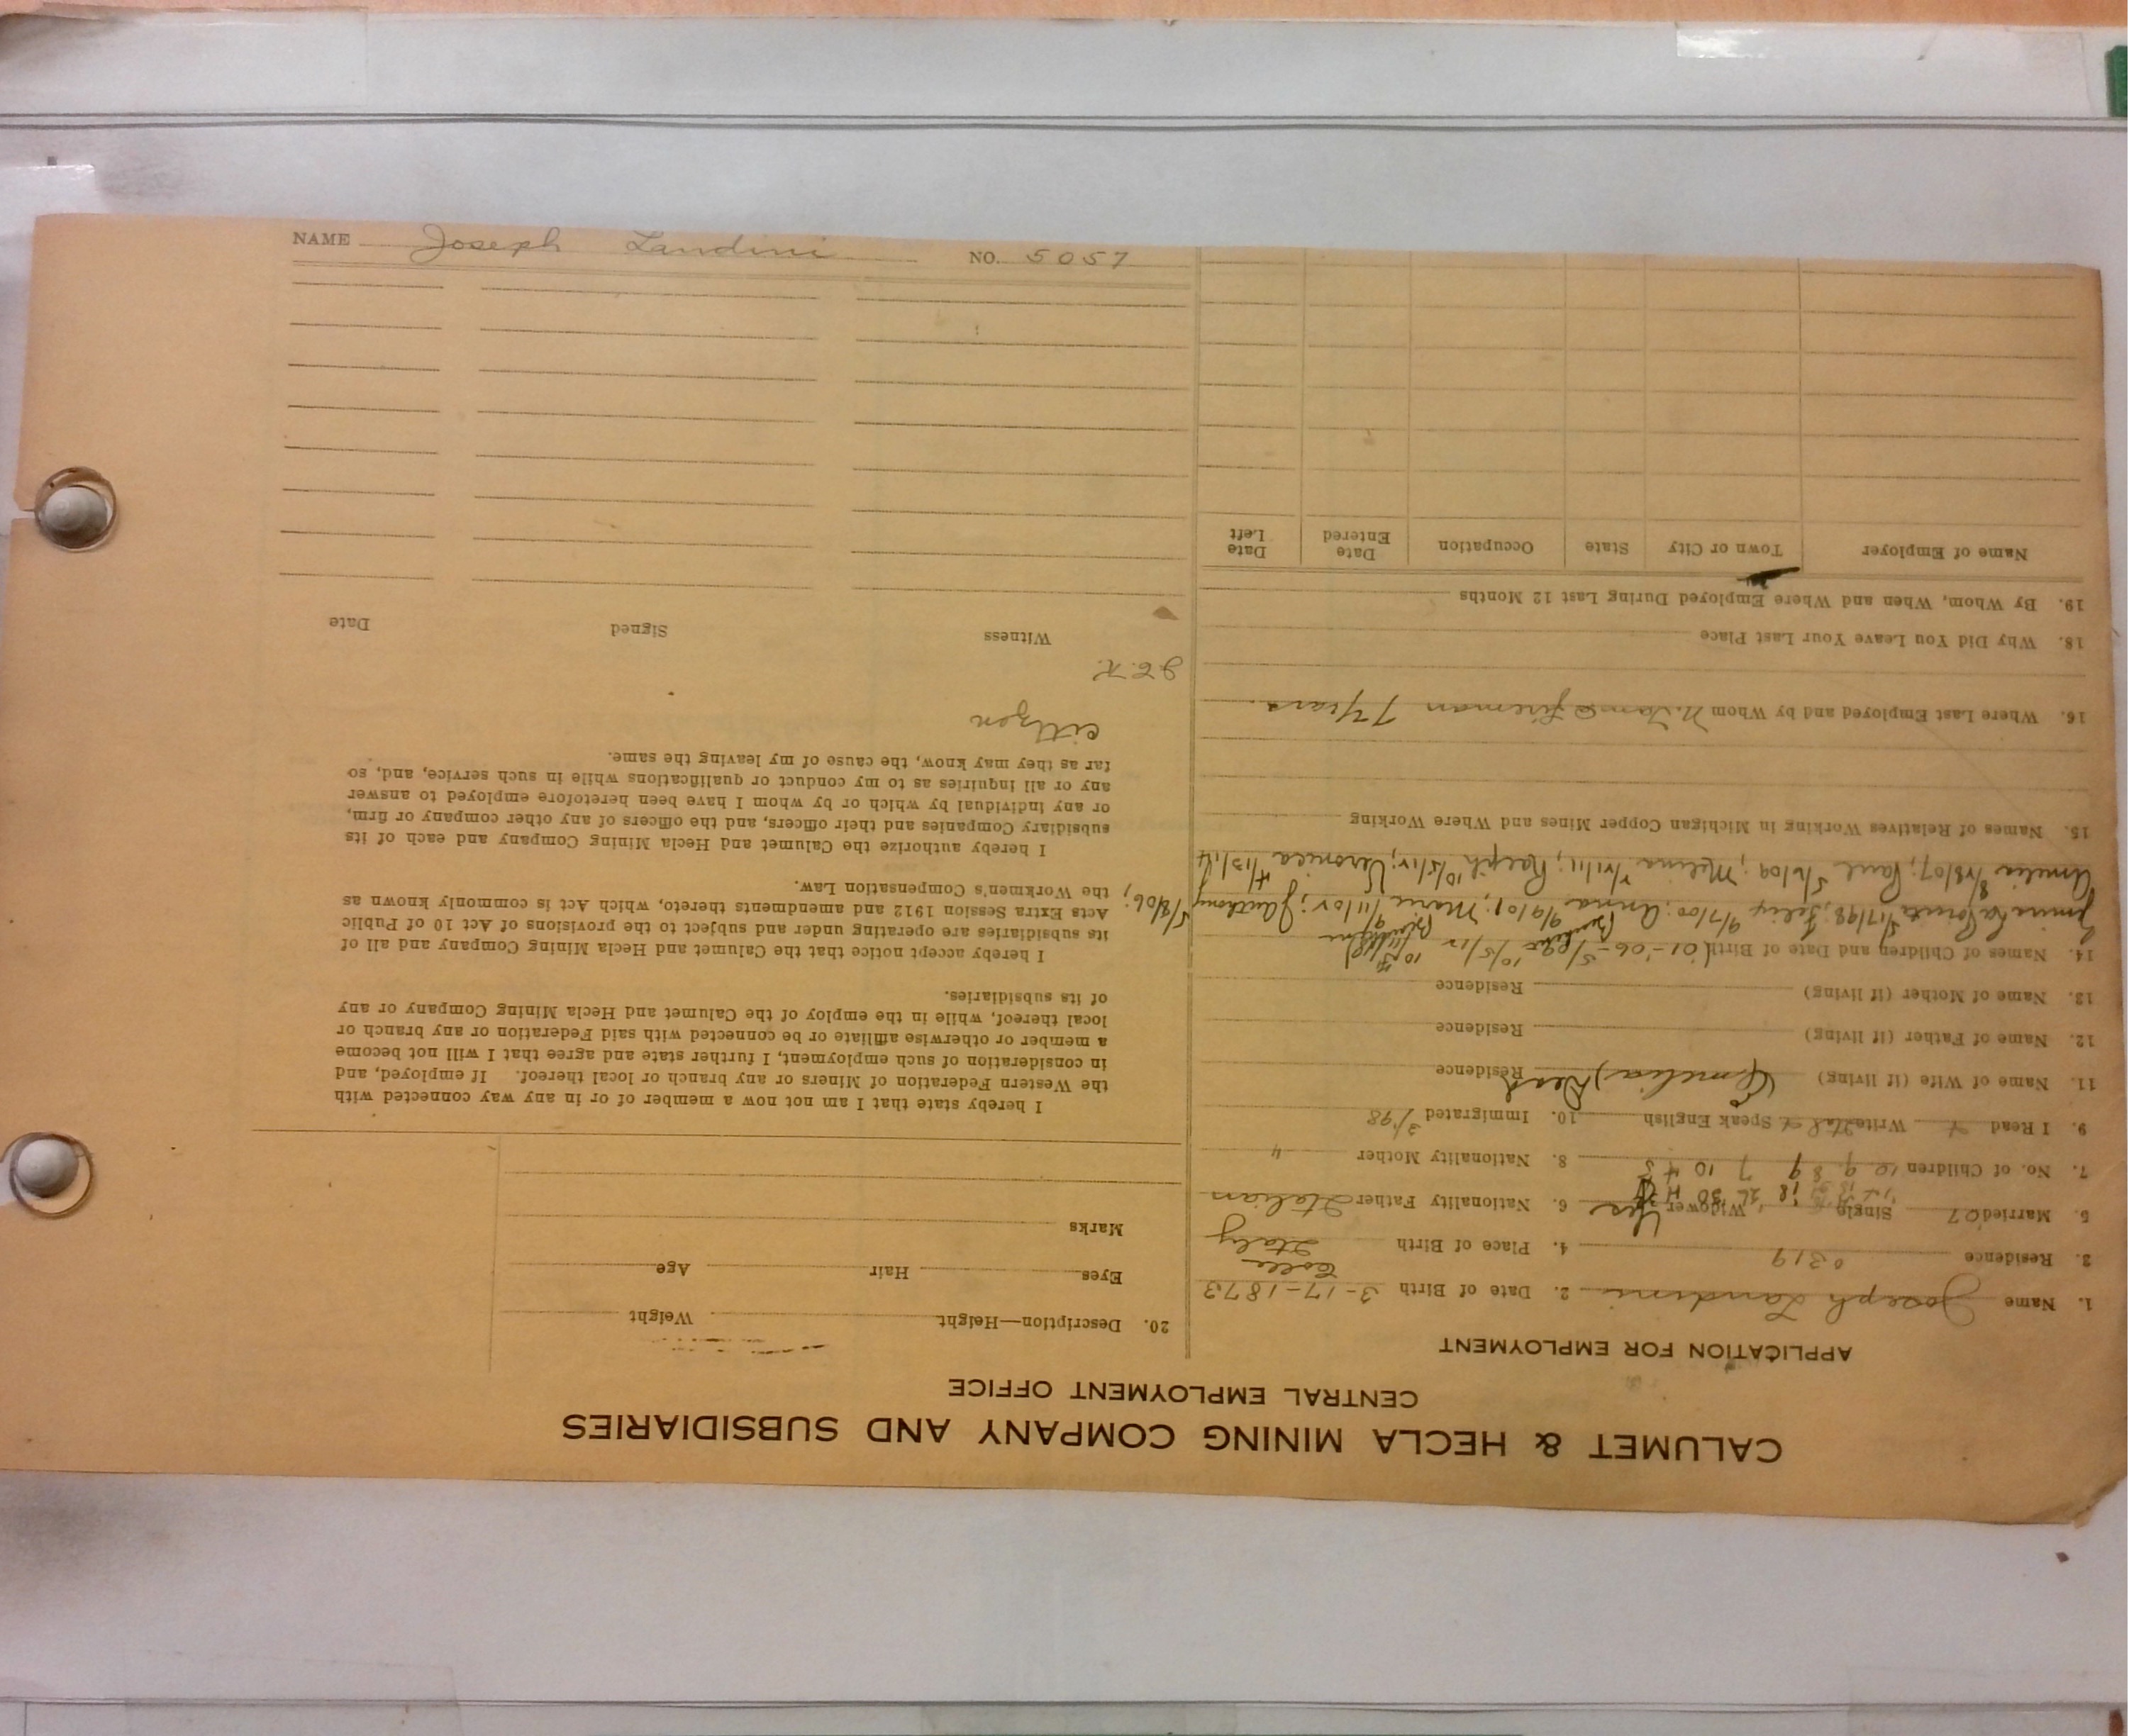 CALUMET & HECLA MINING COMPANY AND SUBSIDIARIES
CENTRAL EMPLOYMENT OFFICE
APPLICATION FOR EMPLOYMENT
1. Name Joseph Landini 2. Date of Birth 3-17-1873
3. Residence 0319 4. Place of Birth Italy
5. Married 07 Single Widower Yes 6. Nationality Father Italian
7. No. of Children 8. Nationality Mother "
9. I Read Write Ital Speak English 10. Immigrated 3/98
11. Name of Wife (if living) (Amelia) Dead Residence
12. Name of Father (if living) Residence
13. Name of Mother (if living) Residence
14. Names of Children and Date of Birth
5/17/98; Felix 9/7/00; Anna 9/9/01; Marie Anthony 5/8/06;
Amelia 8/28/07; Paul 5/6/09; Melina Ralph 10/5/12; Veronica 4/13/14
15. Names of Relatives Working in Michigan Copper Mines and Where Working
16. Where Last Employed and by Whom N. Tam fireman 7 Years
18. Why Did You Leave Your Last Place
19. By Whom, When and Where Employed During Last 12 Months
Name of Employer Town or City State Occupation Date Entered Date Left
20. Description—Height Weight
Eyes Hair Age
Marks
I hereby state that I am not now a member of or in any way connected with
the Western Federation of Miners or any branch or local thereof. If employed, and
in consideration of such employment, I further state and agree that I will not become
a member or otherwise affiliate or be connected with said Federation or any branch or
local thereof, while in the employ of the Calumet and Hecla Mining Company or any
of its subsidiaries.
I hereby accept notice that the Calumet and Hecla Mining Company and all of
its subsidiaries are operating under and subject to the provisions of Act 10 of Public
Acts Extra Session 1912 and amendments thereto, which Act is commonly known as
the Workmen's Compensation Law.
I hereby authorize the Calumet and Hecla Mining Company and each of its
subsidiary Companies and their officers, and the officers of any other company or firm,
or any individual by which or by whom I have been heretofore employed to answer
any or all inquiries as to my conduct or qualifications while in such service, and, so
far as they may know, the cause of my leaving the same.
citizen
Witness Signed Date
NAME Joseph Landini NO. 5057